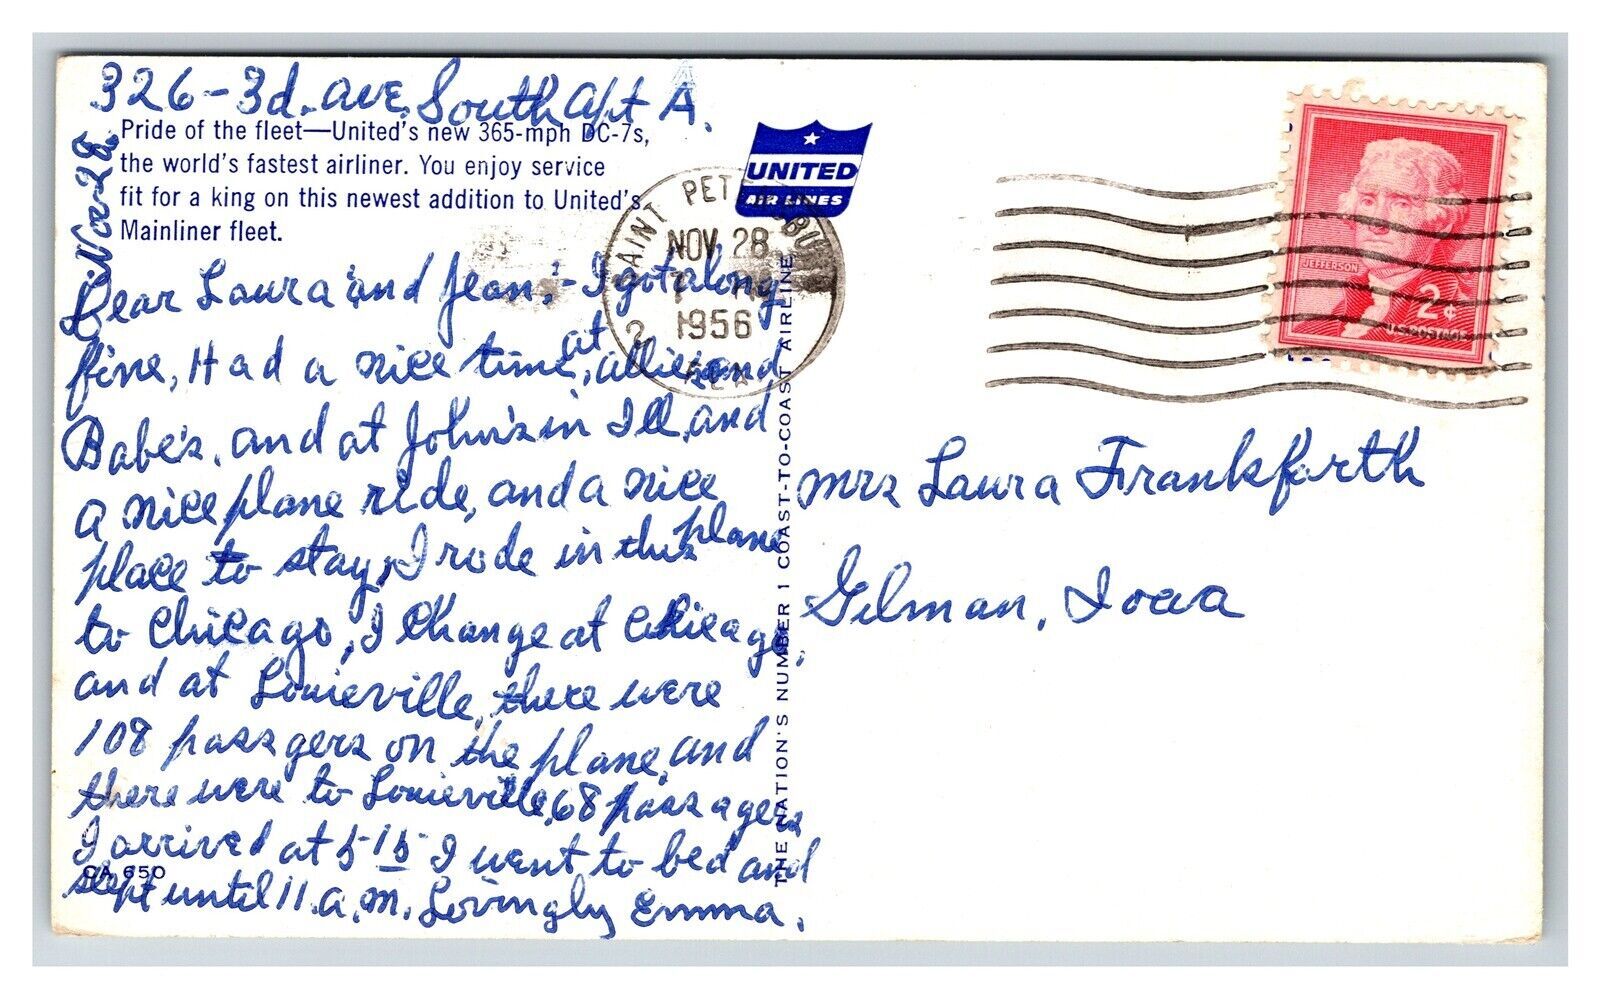 326-3d. ave. South apt A.
Nov-28.
Pride of the fleet—United's new 365-mph DC-7s,
the world's fastest airliner. You enjoy service
fit for a king on this newest addition to United's
Mainliner fleet.
UNITED
AIR LINES
SAINT PETERSBURG
NOV 28
1956
2
FLA
JEFFERSON
2¢
U.S. POSTAGE
Dear Laura and Jean,- I got along
fine, Had a nice time, at allie's and
Babe's, and at John's in Ill, and
a nice plane ride, and a nice
place to stay, I rode in this plane
to Chicago, I Change at Chicago,
and at Louieville, there were
108 passagers on the plane, and
there were to Louieville, 68 passagers
I arrived at 5-15 I went to bed and
slept until 11.a.m. Lovingly Emma.
CA 650
THE NATION'S NUMBER 1 COAST-TO-COAST AIRLINE
Mrs Laura Frankforth
Gilman, Iowa